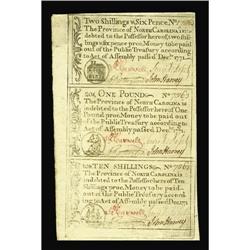 Two Shillings & Six Pence. No
The Province of North Carolina is
indebted to the Possessor hereof two shil-
lings & six pence proc. Money to be paid
out of the Public Treasury according
to Act of Assembly passed Decr. 1771.
John Harvey
20s One Pound No
The Province of North Carolina is
indebted to the Possessor hereof One
Pound proc. Money to be paid out of
the Public Treasury according to Act
of Assembly passed Decr. 1771.
John Harvey
10s Ten Shillings No
The Province of North Carolina is
indebted to the Possessor hereof Ten
Shillings proc. Money to be paid
out of the Public Treasury according
to Act of Assembly passed Dec. 1771
John Harvey